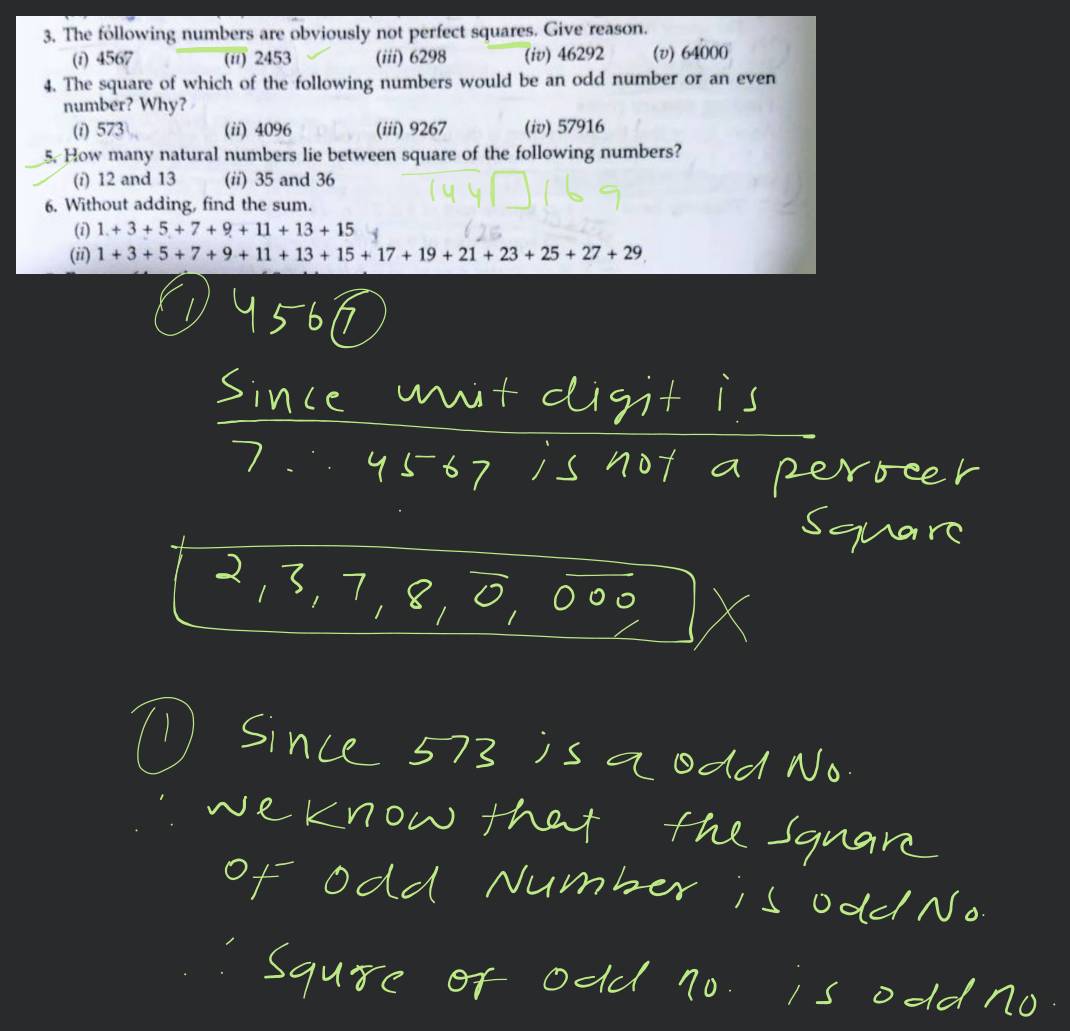 3. The following numbers are obviously not perfect squares. Give reason.
(i) 4567 (ii) 2453 (iii) 6298 (iv) 46292 (v) 64000
4. The square of which of the following numbers would be an odd number or an even
number? Why?
(i) 573 (ii) 4096 (iii) 9267 (iv) 57916
5. How many natural numbers lie between square of the following numbers?
(i) 12 and 13 (ii) 35 and 36
144 169
6. Without adding, find the sum.
(i) 1 + 3 + 5 + 7 + 9 + 11 + 13 + 15
(ii) 1 + 3 + 5 + 7 + 9 + 11 + 13 + 15 + 17 + 19 + 21 + 23 + 25 + 27 + 29
① 4567
Since unit digit is
7 ∴ 4567 is not a
Square
2, 3, 7, 8, 0, 000 X
① Since 573 is a odd No.
∴ we know that the Square
of odd Number is odd No.
∴ Squre of odd no. is odd no.